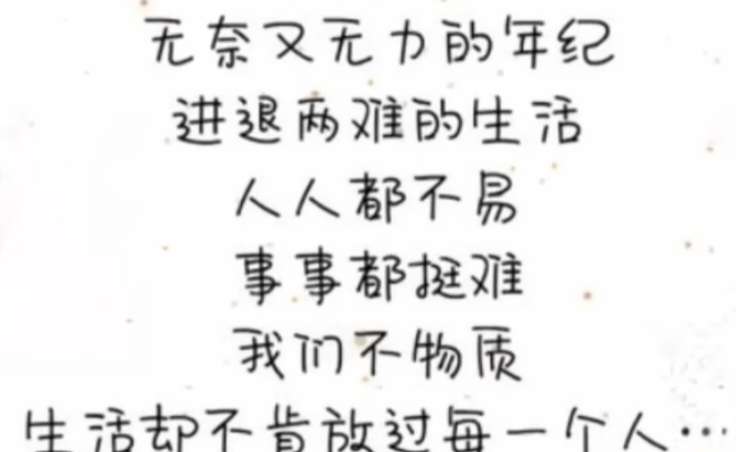 无奈又无力的年纪
进退两难的生活
人人都不易
事事都挺难
我们不物质
生活却不肯放过每一个人…